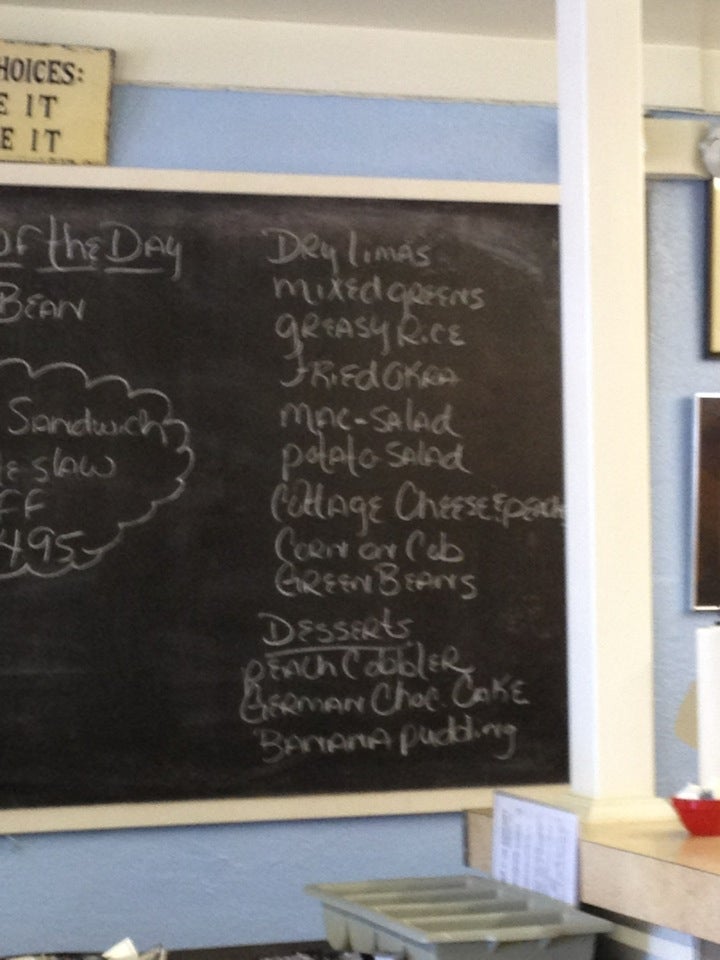 HOICES:
E IT
E IT
Of the Day
Bean
Sandwich
le slaw
FF
495
Dry Limas
mixed greens
greasy Rice
Fried Okra
mac-salad
potato salad
Cottage Cheese & peach
Corn on Cob
Green Beans
Desserts
peach Cobbler
German Choc. Cake
Banana pudding